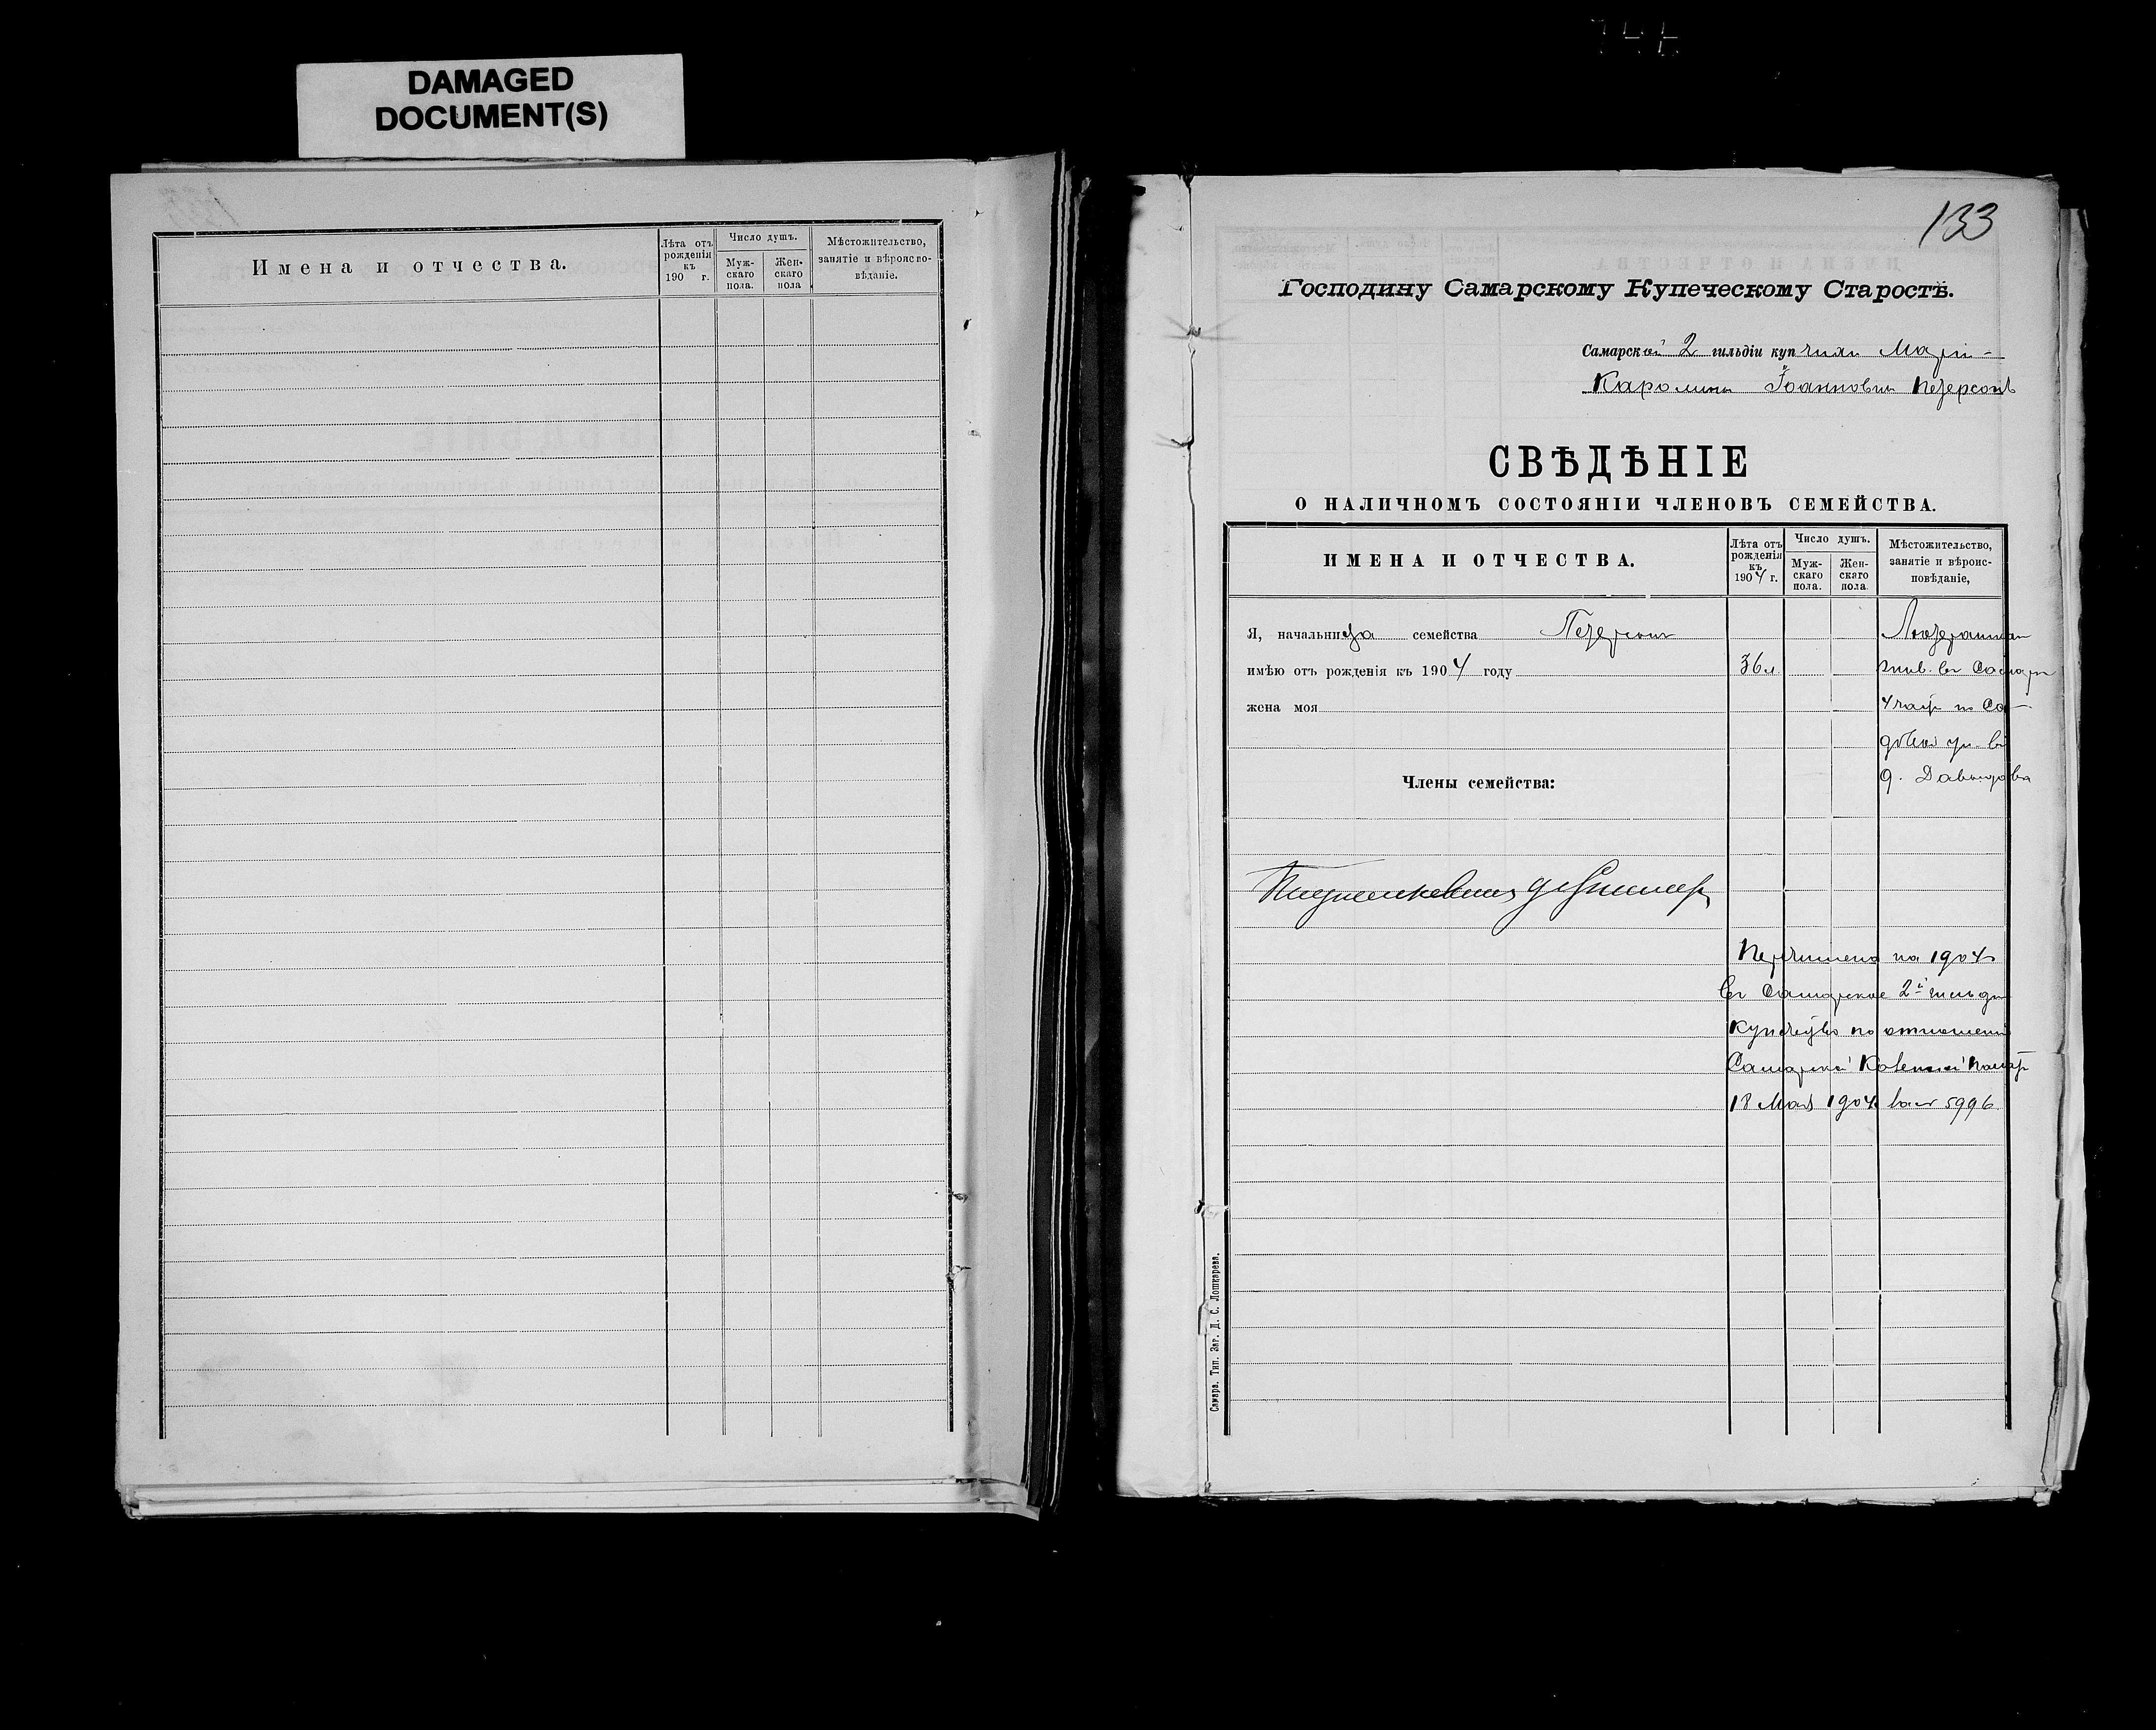 DAMAGED
DOCUMENT(S)
Имена и отчества.
Лѣта отъ рожденія къ 190 г.
Число душъ.
Муж-скаго пола.
Жен-скаго пола
Мѣстожительство, занятіе и вѣроиспо-вѣданіе.
133
Господину Самарскому Купеческому Старостѣ.
Самарской 2 гильдіи купчихи Маріи-
Каролины Іоанновны Петерсонъ
СВѢДѢНІЕ
О НАЛИЧНОМЪ СОСТОЯНІИ ЧЛЕНОВЪ СЕМЕЙСТВА.
ИМЕНА И ОТЧЕСТВА.
Лѣта отъ рожденія къ 1904 г.
Число душъ.
Муж-скаго пола.
Жен-скаго пола.
Мѣстожительство, занятіе и вѣроис-повѣданіе,
Я, начальница семейства Петерсонъ
имѣю отъ рожденія къ 1904 году 36 л.
жена моя
Лютеранка
жив. въ Самарѣ
4 части по Са-
довой ул. въ
д. Давыдова
Члены семейства:
Перечислена на 1904
въ Самарское 2й гильдіи
купечество по отношенію
Самарской Казенной Палаты
18 Мая 1904 за № 5996
Самара. Тип. Заг. Д. С. Лошкарева.